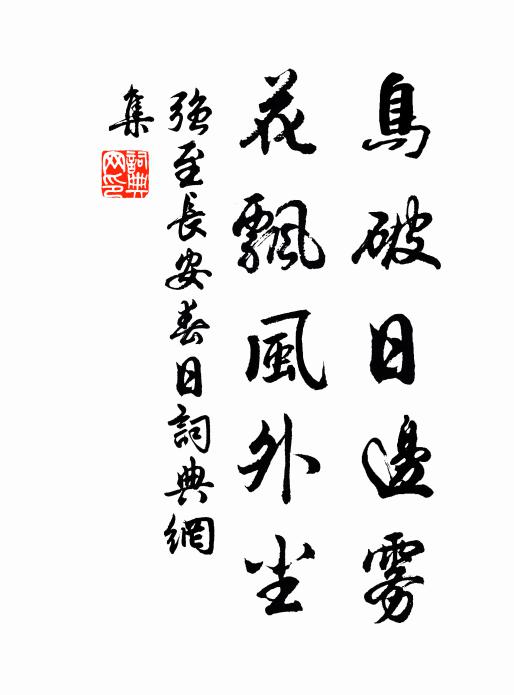 鳥破日邊霧
花飄風外尘
強至長安春日詞典網
集
詞典網印